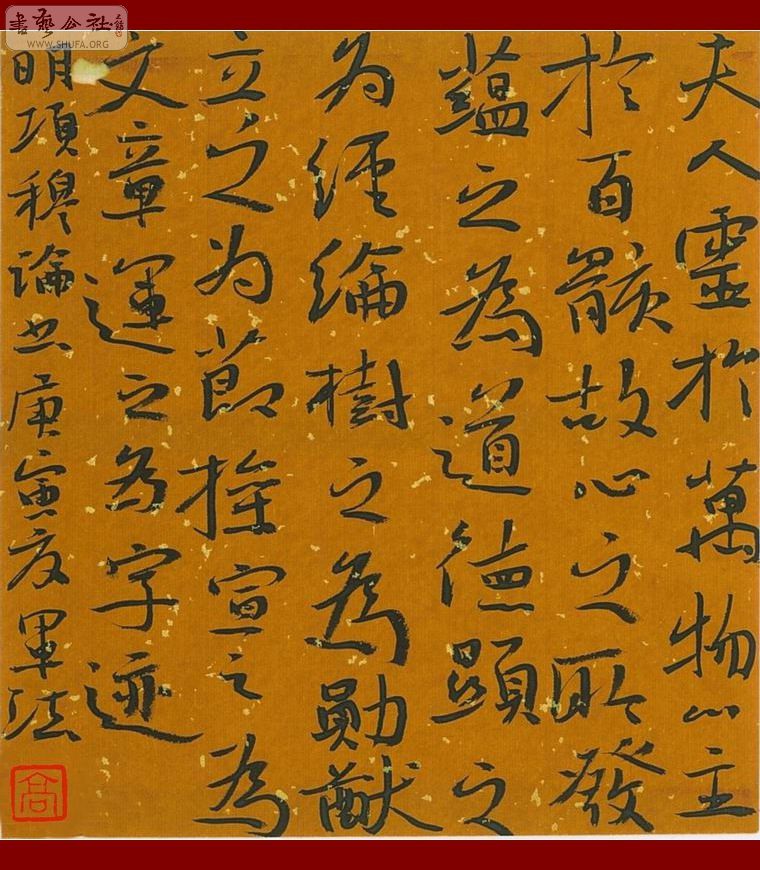 夫人靈於萬物心主
於百骸故心之所發
蘊之為道德顯之
为經綸樹之為勛猷
立之为節操宣之為
文章運之為字迹
明項穆論书庚寅友軍法
高
書藝公社
WWW.SHUFA.ORG